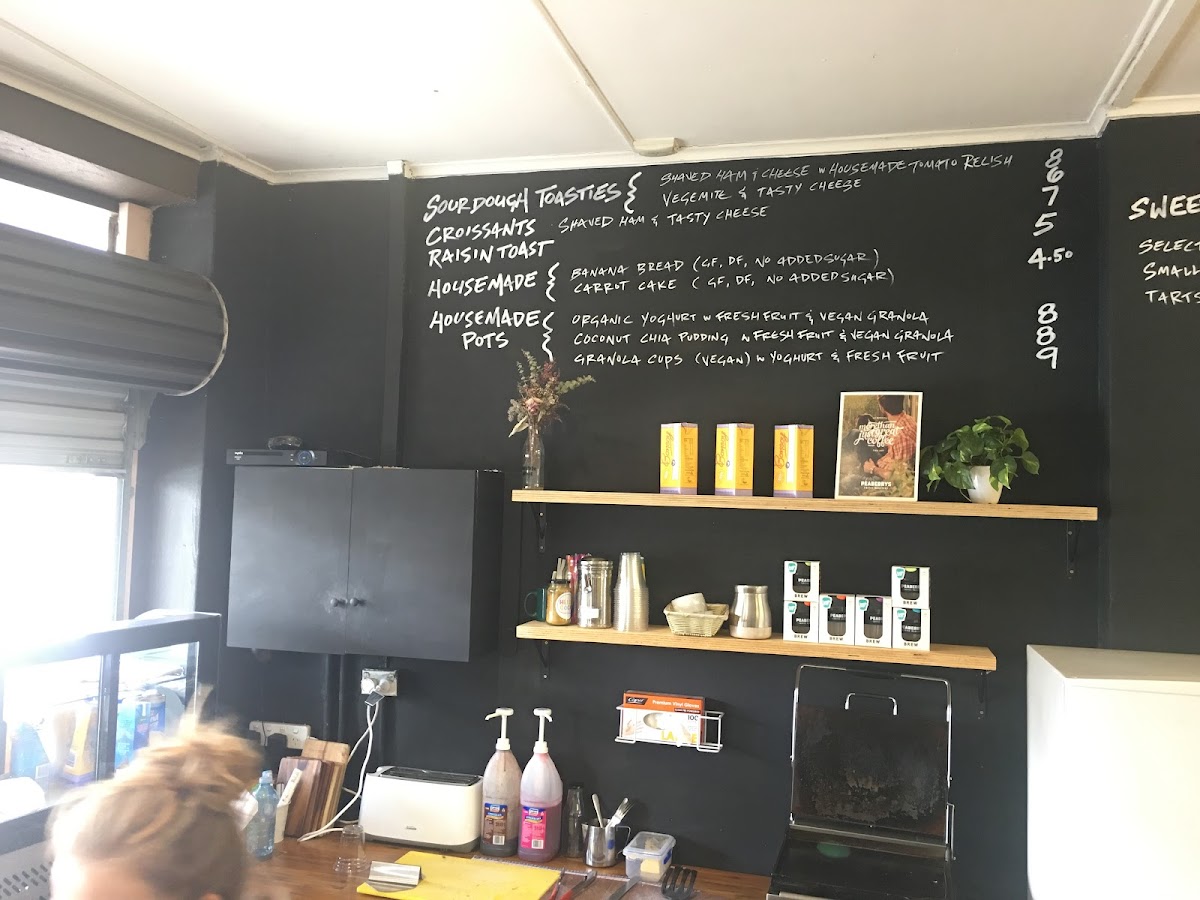 SOURDOUGH TOASTIES { SHAVED HAM & CHEESE w HOUSEMADE TOMATO RELISH 8
VEGEMITE & TASTY CHEESE 6
CROISSANTS SHAVED HAM & TASTY CHEESE 7
RAISIN TOAST 5
HOUSEMADE { BANANA BREAD (GF, DF, NO ADDED SUGAR) 4.50
CARROT CAKE (GF, DF, NO ADDED SUGAR)
HOUSEMADE POTS { ORGANIC YOGHURT w FRESH FRUIT & VEGAN GRANOLA 8
COCONUT CHIA PUDDING w FRESH FRUIT & VEGAN GRANOLA 8
GRANOLA CUPS (VEGAN) w YOGHURT & FRESH FRUIT 9
SWEE
SELECT
SMALL
TARTS
more than
just great
coffee
PEABERRYS
BREW
BREW
BREW
BREW
BREW
Premium Vinyl Gloves
100